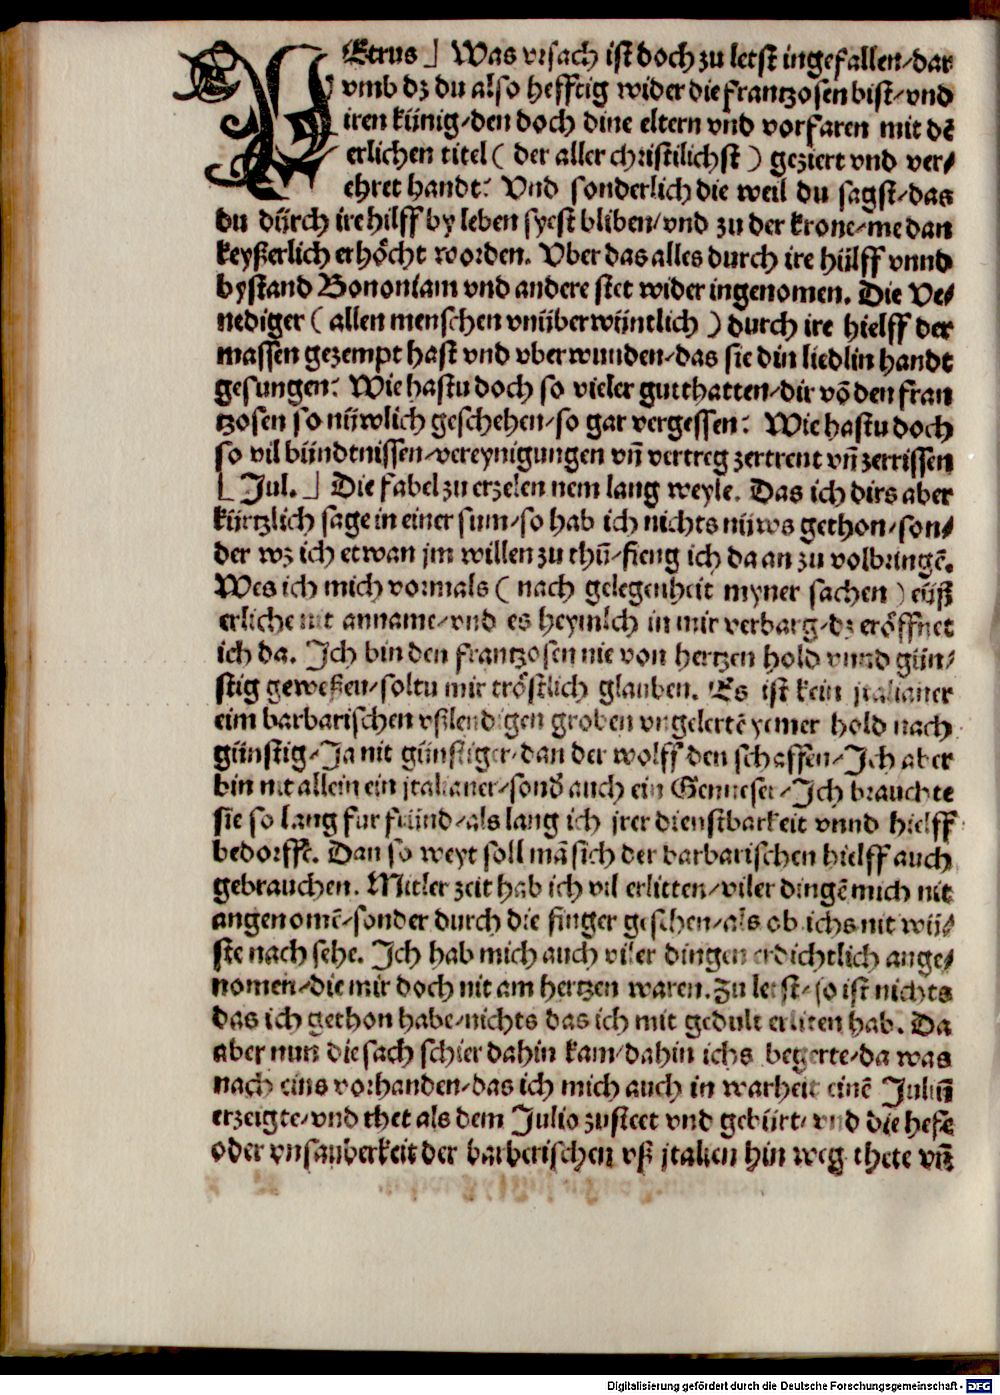 PEtrus ⌋ Was vrsach ist doch zu letst ingefallen/dar
vmb dz du also hefftig wider die frantzosen bist/vnd
iren künig/den doch dine eltern vnd vorfaren mit dē
erlichen titel ( der aller christilichst ) geziert vnd ver/
ehret handt? Vnd sonderlich die weil du sagst/das
du dürch ire hilff by leben syest bliben/vnd zu der krone/me dan
keyßerlich erhöcht worden. Vber das alles durch ire hülff vnnd
bystand Bononiam vnd andere stet wider ingenomen. Die Ve/
nediger ( allen menschen vnüberwüntlich ) durch ire hielff der
massen gezempt hast vnd vberwunden/das sie din liedlin handt
gesungen? Wie hastu doch so vieler gutthatten/dir vō den fran
tzosen so nüwlich geschehen/so gar vergessen? Wie hastu doch
so vil bündtnissen/vereynigungen vn̄ vertreg zertrent vn̄ zerrissen
⌊ Jul. ⌋ Die fabel zu erzelen nem lang weyle. Das ich dirs aber
kürtzlich sage in einer sum/so hab ich nichts nüws gethon/son/
der wz ich etwan jm willen zu thū/fieng ich da an zu volbringē.
Wes ich mich vormals ( nach gelegenheit myner sachen ) eüß
erliche nit anname/vnd es heymlich in mir verbarg/dz eröffnet
ich da. Ich bin den frantzosen nie von hertzen hold vnnd gün/
stig geweßen/soltu mir tröstlich glauben. Es ist kein jtalianer
eim barbarischen vßlendigen groben vngelertē yemer hold nach
günstig/Ja nit günstiger/dan der wolff den schaffen/Ich aber
bin nit allein ein jtalianer/sond̄ auch ein Genueser/Ich brauchte
sie so lang fur fründ/als lang ich jrer dienstbarkeit vnnd hielff
bedorfft. Dan so weyt soll mā sich der barbarischen hielff auch
gebrauchen. Mitler zeit hab ich vil erlitten/viler dingē mich nit
angenomē/sonder durch die finger gesehen/als ob ichs nit wü/
ste nach sehe. Ich hab mich auch viler dingen erdichtlich ange/
nomen/die mir doch nit am hertzen waren. Zu letst/so ist nichts
das ich gethon habe/nichts das ich mit gedult erliten hab. Da
aber nun die sach schier dahin kam/dahin ichs begerte/da was
nach eins vorhanden/das ich mich auch in warheit einē Juliū
erzeigte/vnd thet als dem Julio zusteet vnd gebürt/vnd die hefe
oder vnsauberkeit der barberischen vß jtalien hin weg thete vn̄
Digitalisierung gefördert durch die Deutsche Forschungsgemeinschaft - DFG